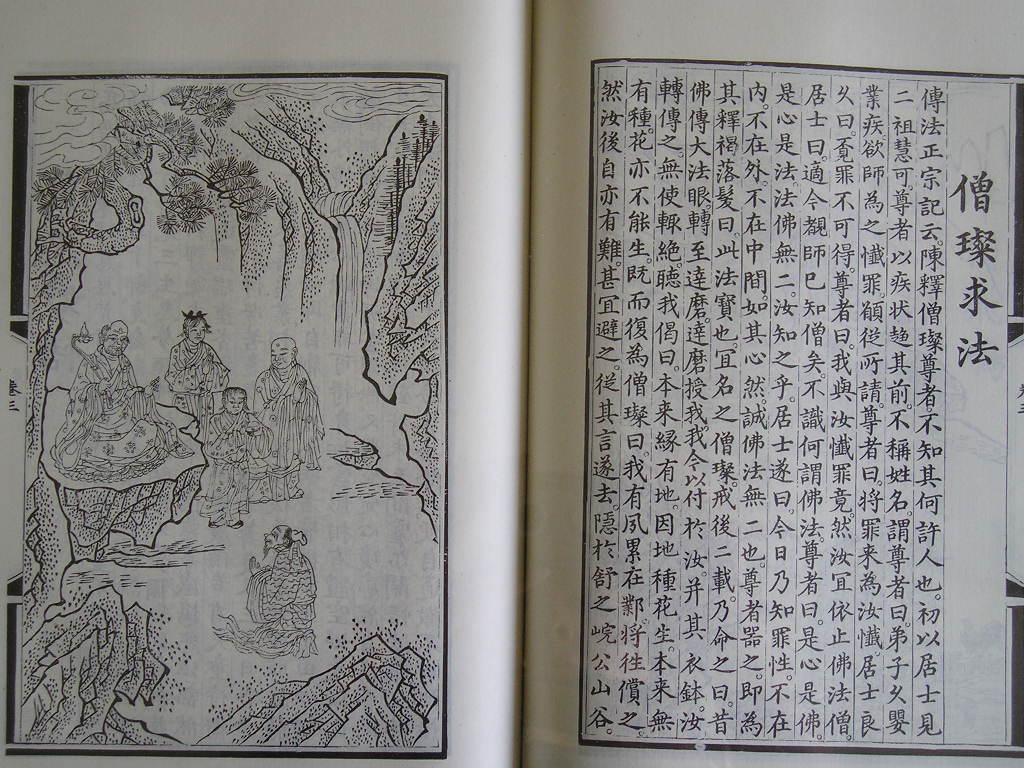 僧璨求法
傳法正宗記云。陳釋僧璨尊者。不知其何許人也。初以居士見
二祖慧可尊者。以疾状趍其前。不稱姓名。謂尊者曰。弟子久嬰
業疾欲師為之懺罪。願從所請。尊者曰。将罪来為汝懺居士良
久曰。覔罪不可得。尊者曰。我與汝懺罪竟。然汝宜依止佛法僧。
居士曰。適今覩師已知僧矣。不識何謂佛法。尊者曰。是心是佛。
是心是法。法佛無二。汝知之乎。居士遂曰。今日乃知罪性。不在
内。不在外。不在中間。如其心然。誠佛法無二也。尊者器之。即為
其釋褐落髮曰。此法寶也。宜名之僧璨。戒後二載乃命之曰。昔
佛傳大法眼。轉至達磨。達磨授我。我今以付於汝。并其衣鉢。汝
轉傳之。無使輙絶。聽我偈曰。本来緣有地。因地種花生。本来無
有種。花亦不能生。既而復為僧璨曰。我有夙累在鄴。将往償之。
然汝後自亦有難。甚宜避之。從其言遂去。隱於舒之皖公山谷。
卷三